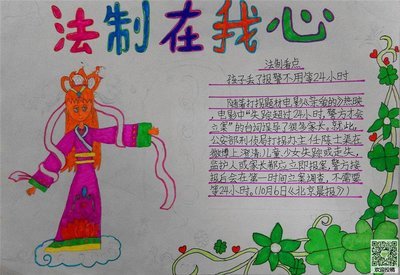 法制在我心
法制看点
孩子丢了报警不用等24小时
随着打拐题材电影《亲爱的》热映,
电影中“失踪超过24小时,警方才会
立案”的台词误导了很多家长。就此,
公安部刑侦局打拐办主任陈士渠在
微博上澄清:儿童、少女失踪或走失,
监护人或家长都应立即报案,警方接
报后会在第一时间立案调查,不需要
等24小时。(10月6日《北京晨报》)
欢迎投稿